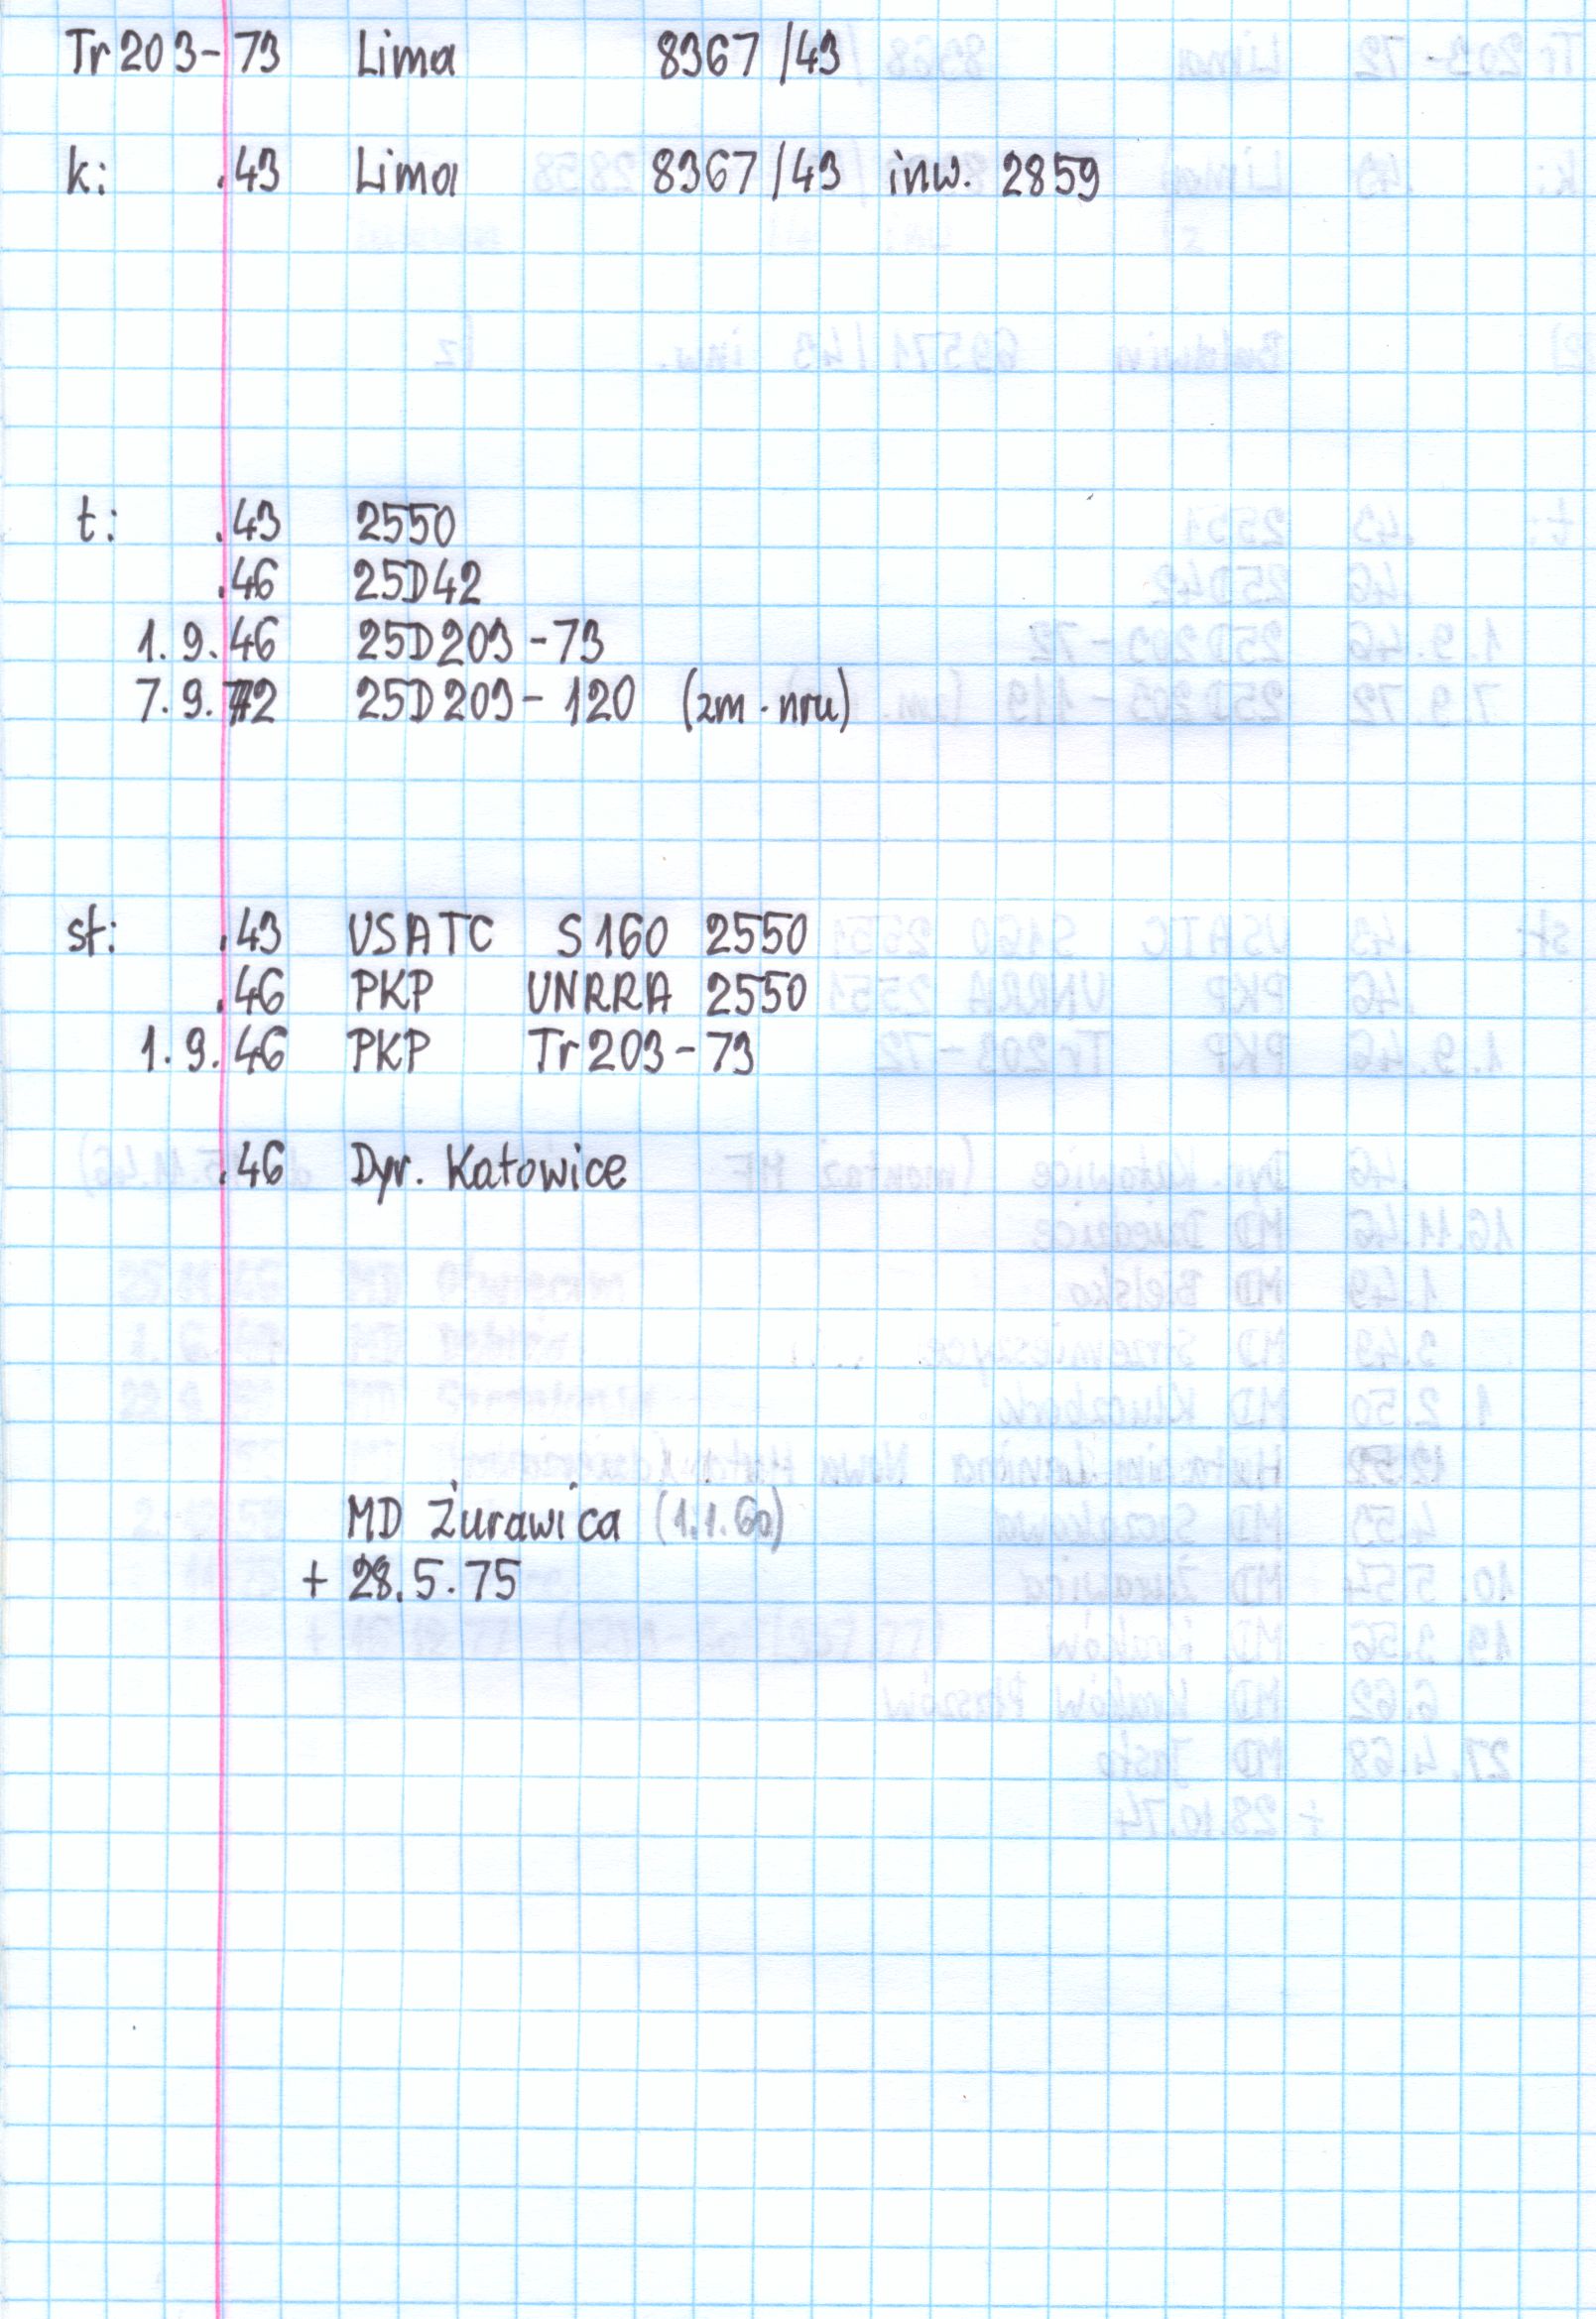 Tr 203-73 Lima 8367/43
k: .43 Lima 8367/43 inw. 2859
t: .43 2550
.46 25D42
1.9.46 25D203-73
7.9.72 25D203-120 (zm. nru)
st: .43 USATC S160 2550
.46 PKP UNRRA 2550
1.9.46 PKP Tr203-73
.46 Dyr. Katowice
MD Żurawica (1.1.60)
+ 28.5.75